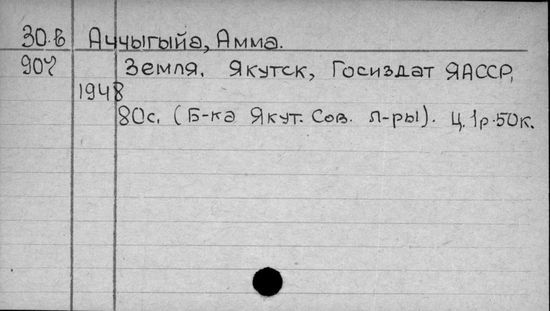 30.в Аччыгыйа, Амма.
904 Земля. Якутск, Госиздат ЯАССР,
1948
80с. (Б-ка Якут. Сов. л-ры). Ц. 1р.50к.